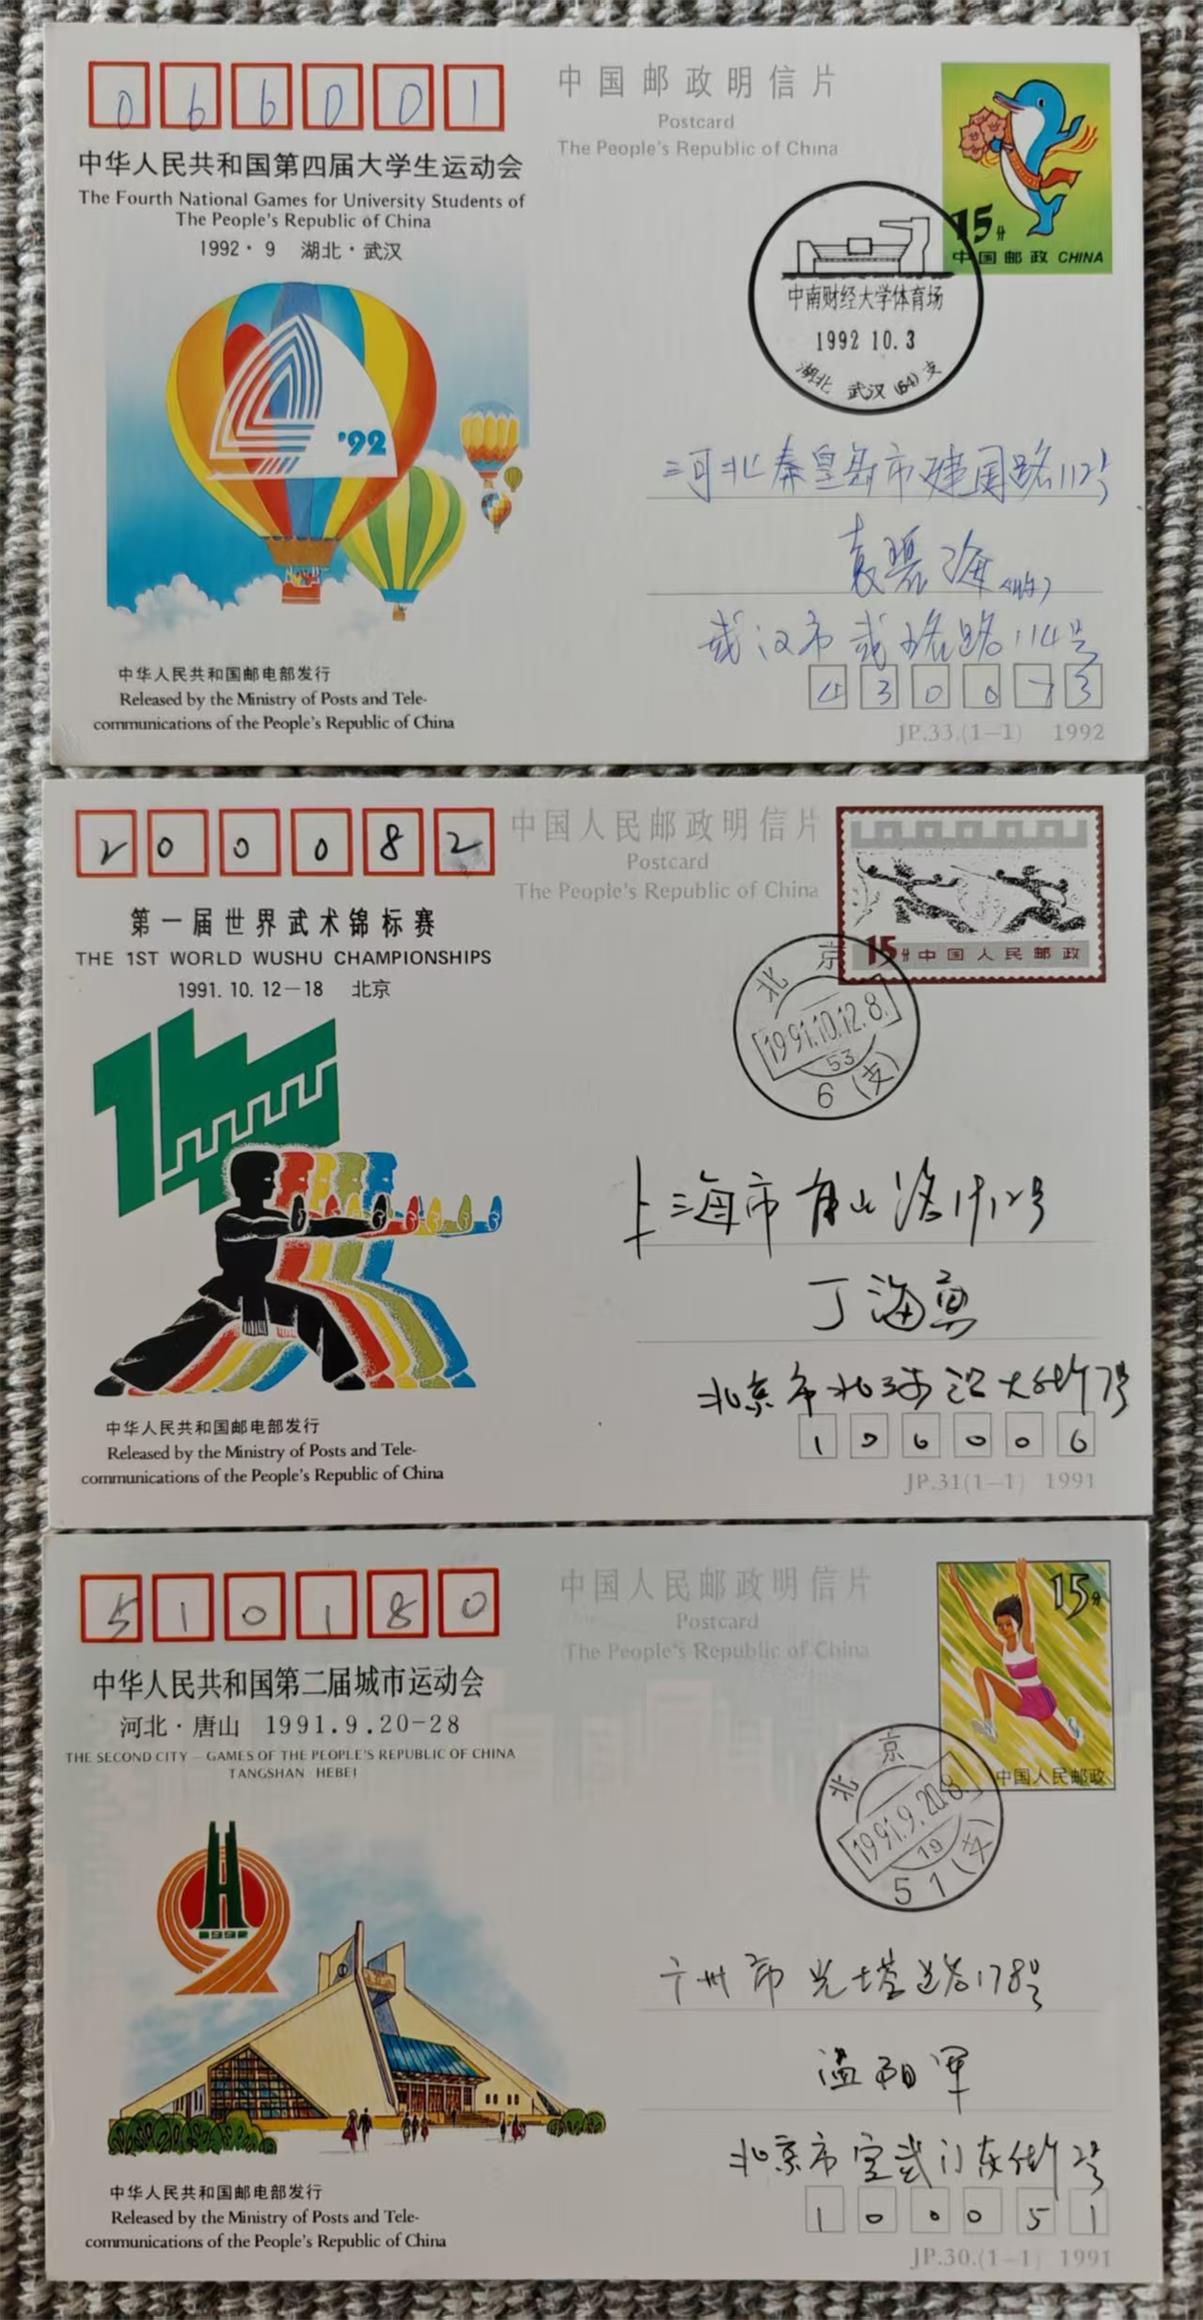 066001
中国邮政明信片
Postcard
The People's Republic of China
中华人民共和国第四届大学生运动会
The Fourth National Games for University Students of
The People's Republic of China
1992·9 湖北·武汉
15分
中国邮政 CHINA
中南财经大学体育场
1992 10.3
湖北 武汉(64)支
'92
河北秦皇岛市建国路112号
袁碧海(收)
武汉市武珞路114号
430073
中华人民共和国邮电部发行
Released by the Ministry of Posts and Tele-
communications of the People's Republic of China
JP.33.(1-1) 1992
200082
中国人民邮政明信片
Postcard
The People's Republic of China
第一届世界武术锦标赛
THE 1ST WORLD WUSHU CHAMPIONSHIPS
1991.10.12-18 北京
15分中国人民邮政
北京
1991.10.12.8.
53
6(支)
上海市
丁海勇
北京市北 大街7号
100006
中华人民共和国邮电部发行
Released by the Ministry of Posts and Tele-
communications of the People's Republic of China
JP.31(1-1) 1991
510180
中国人民邮政明信片
Postcard
The People's Republic of China
中华人民共和国第二届城市运动会
河北·唐山 1991.9.20-28
THE SECOND CITY-GAMES OF THE PEOPLE'S REPUBLIC OF CHINA
TANGSHAN HEBEI
15分
中国人民邮政
北京
1991.9.20.8.
19
51(支)
1991
广州市光塔路178号
温阳军
北京市宣武门东街2号
100051
中华人民共和国邮电部发行
Released by the Ministry of Posts and Tele-
communications of the People's Republic of China
JP.30.(1-1) 1991